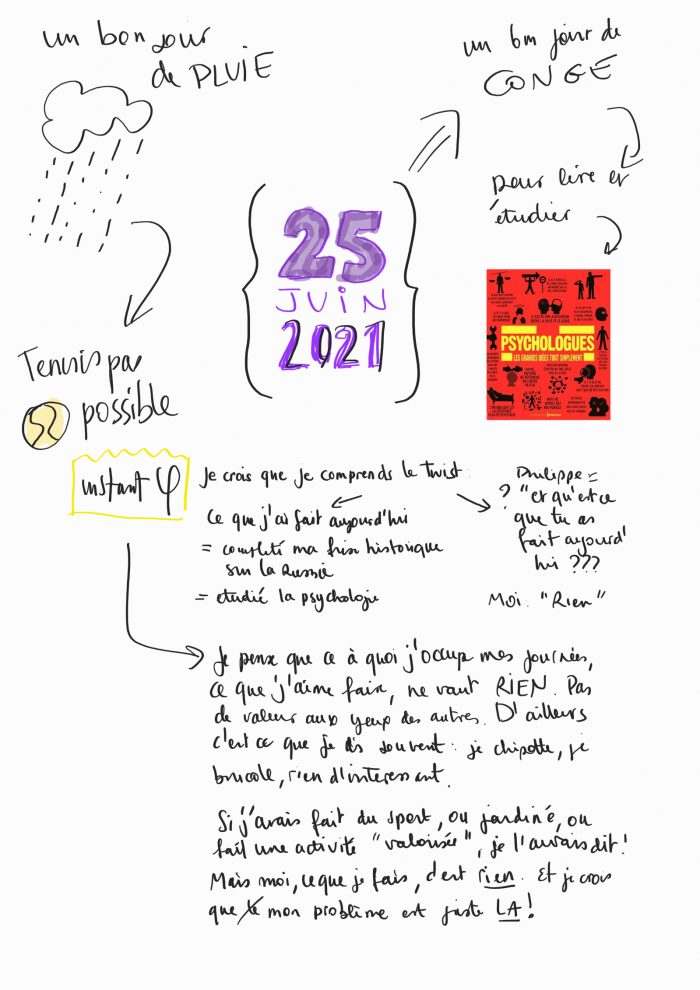 un bon jour
de PLUIE
un bon jour de
CONGE
pour lire et
étudier
25
JUIN
2021
PSYCHOLOGUES
LES GRANDES IDÉES TOUT SIMPLEMENT
Tennis pas
possible
instant φ
Je crois que je comprends le twist.
Ce que j'ai fait aujourd'hui
= complété ma frise historique
sur la Russie
= etudié la psychologie
Philippe =
? "et qu'est ce
que tu as
fait aujourd'
hui ???
Moi. "Rien"
Je pense que ce à quoi j'occupe mes journées,
ce que j'aime faire, ne vaut RIEN. Pas
de valeur aux yeux des autres. D'ailleurs
c'est ce que je dis souvent : je chipotte, je
bricole, rien d'interessant.
Si j'avais fait du sport, ou jardiné, ou
fait une activité "valorisée", je l'aurais dit !
Mais moi, ce que je fais, c'est rien. Et je crois
que le mon problème est juste LA !